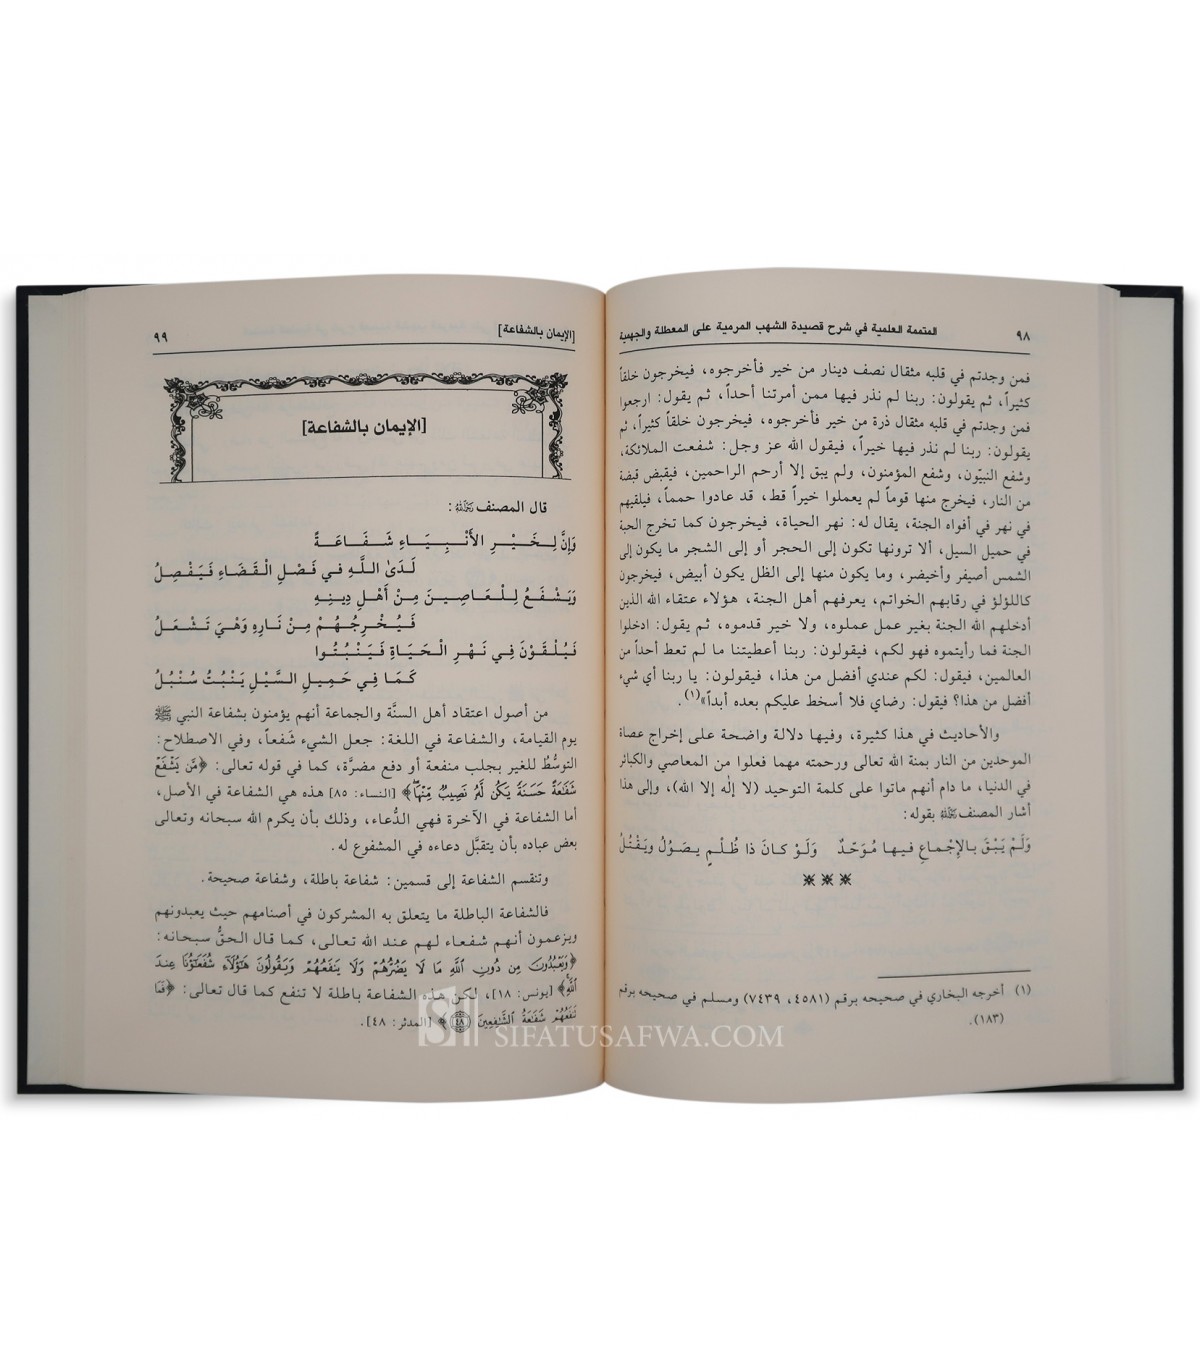 ٩٨
المتممة العلمية في شرح قصيدة الشهب المرمية على المعطلة والجهمية
فمن وجدتم في قلبه مثقال نصف دينار من خير فأخرجوه، فيخرجون خلقاً
كثيراً، ثم يقولون: ربنا لم نذر فيها ممن أمرتنا أحداً، ثم يقول: ارجعوا
فمن وجدتم في قلبه مثقال ذرة من خير فأخرجوه، فيخرجون خلقاً كثيراً، ثم
يقولون: ربنا لم نذر فيها خيراً، فيقول الله عز وجل: شفعت الملائكة،
وشفع النبيّون، وشفع المؤمنون، ولم يبق إلا أرحم الراحمين، فيقبض قبضة
من النار، فيخرج منها قوماً لم يعملوا خيراً قط، قد عادوا حمماً، فيلقيهم
في نهر في أفواه الجنة، يقال له: نهر الحياة، فيخرجون كما تخرج الحبة
في حميل السيل، ألا ترونها تكون إلى الحجر أو إلى الشجر ما يكون إلى
الشمس أصيفر وأخيضر، وما يكون منها إلى الظل يكون أبيض، فيخرجون
كاللؤلؤ في رقابهم الخواتم، يعرفهم أهل الجنة، هؤلاء عتقاء الله الذين
أدخلهم الله الجنة بغير عمل عملوه، ولا خير قدموه، ثم يقول: ادخلوا
الجنة فما رأيتموه فهو لكم، فيقولون: ربنا أعطيتنا ما لم تعط أحداً من
العالمين، فيقول: لكم عندي أفضل من هذا، فيقولون: يا ربنا أي شيء
أفضل من هذا؟ فيقول: رضاي فلا أسخط عليكم بعده أبداً»(١).
والأحاديث في هذا كثيرة، وفيها دلالة واضحة على إخراج عصاة
الموحدين من النار بمنة الله تعالى ورحمته مهما فعلوا من المعاصي والكبائر
في الدنيا، ما دام أنهم ماتوا على كلمة التوحيد (لا إلٰه إلا الله)، وإلى هذا
أشار المصنف رحمه الله بقوله:
وَلَمْ يَبْقَ بِالإجْمَاعِ فِيهَا مُوَحِّدٌ وَلَوْ كَانَ ذَا ظُلْمٍ يَصُوْلُ وَيَقْتُلُ
(١) أخرجه البخاري في صحيحه برقم (٤٥٨١، ٧٤٣٩) ومسلم في صحيحه برقم
(١٨٣).
[الإيمان بالشفاعة]
٩٩
[الإيمان بالشفاعة]
قال المصنف رحمه الله:
وَإِنَّ لِخَيْرِ الأَنْبِيَاءِ شَفَاعَةً
لَدَىٰ اللَّهِ في فَصْلِ الْقَضَاءِ فَيَفْصِلُ
وَيَشْفَعُ لِلْعَاصِينَ مِنْ أَهْلِ دِينِهِ
فَيُخْرِجُهُمْ مِنْ نَارِهِ وَهْيَ تَشْعَلُ
فَيُلْقَوْنَ فِي نَهْرِ الْحَيَاةِ فَيَنْبُتُوا
كَمَا فِي حَمِيلِ السَّيْلِ يَنْبُتُ سُنْبُلُ
من أصول اعتقاد أهل السنَّة والجماعة أنهم يؤمنون بشفاعة النبي ﷺ
يوم القيامة، والشفاعة في اللغة: جعل الشيء شَفعاً، وفي الاصطلاح:
التوسُّط للغير بجلب منفعة أو دفع مضرَّة، كما في قوله تعالى: ﴿مَّن يَشْفَعْ
شَفَٰعَةً حَسَنَةً يَكُن لَّهُۥ نَصِيبٌ مِّنْهَا﴾ [النساء: ٨٥] هذه هي الشفاعة في الأصل،
أما الشفاعة في الآخرة فهي الدُّعاء، وذلك بأن يكرم الله سبحانه وتعالى
بعض عباده بأن يتقبَّل دعاءه في المشفوع له.
وتنقسم الشفاعة إلى قسمين: شفاعة باطلة، وشفاعة صحيحة.
فالشفاعة الباطلة ما يتعلق به المشركون في أصنامهم حيث يعبدونهم
ويزعمون أنهم شفعاء لهم عند الله تعالى، كما قال الحقُّ سبحانه:
﴿وَيَعْبُدُونَ مِن دُونِ ٱللَّهِ مَا لَا يَضُرُّهُمْ وَلَا يَنفَعُهُمْ وَيَقُولُونَ هَٰٓؤُلَآءِ شُفَعَٰٓؤُنَا عِندَ
ٱللَّهِ﴾ [يونس: ١٨]، لكن هذه الشفاعة باطلة لا تنفع كما قال تعالى: ﴿فَمَا
تَنفَعُهُمْ شَفَٰعَةُ ٱلشَّٰفِعِينَ ٤٨﴾ [المدثر: ٤٨].
SIFATUSAFWA.COM